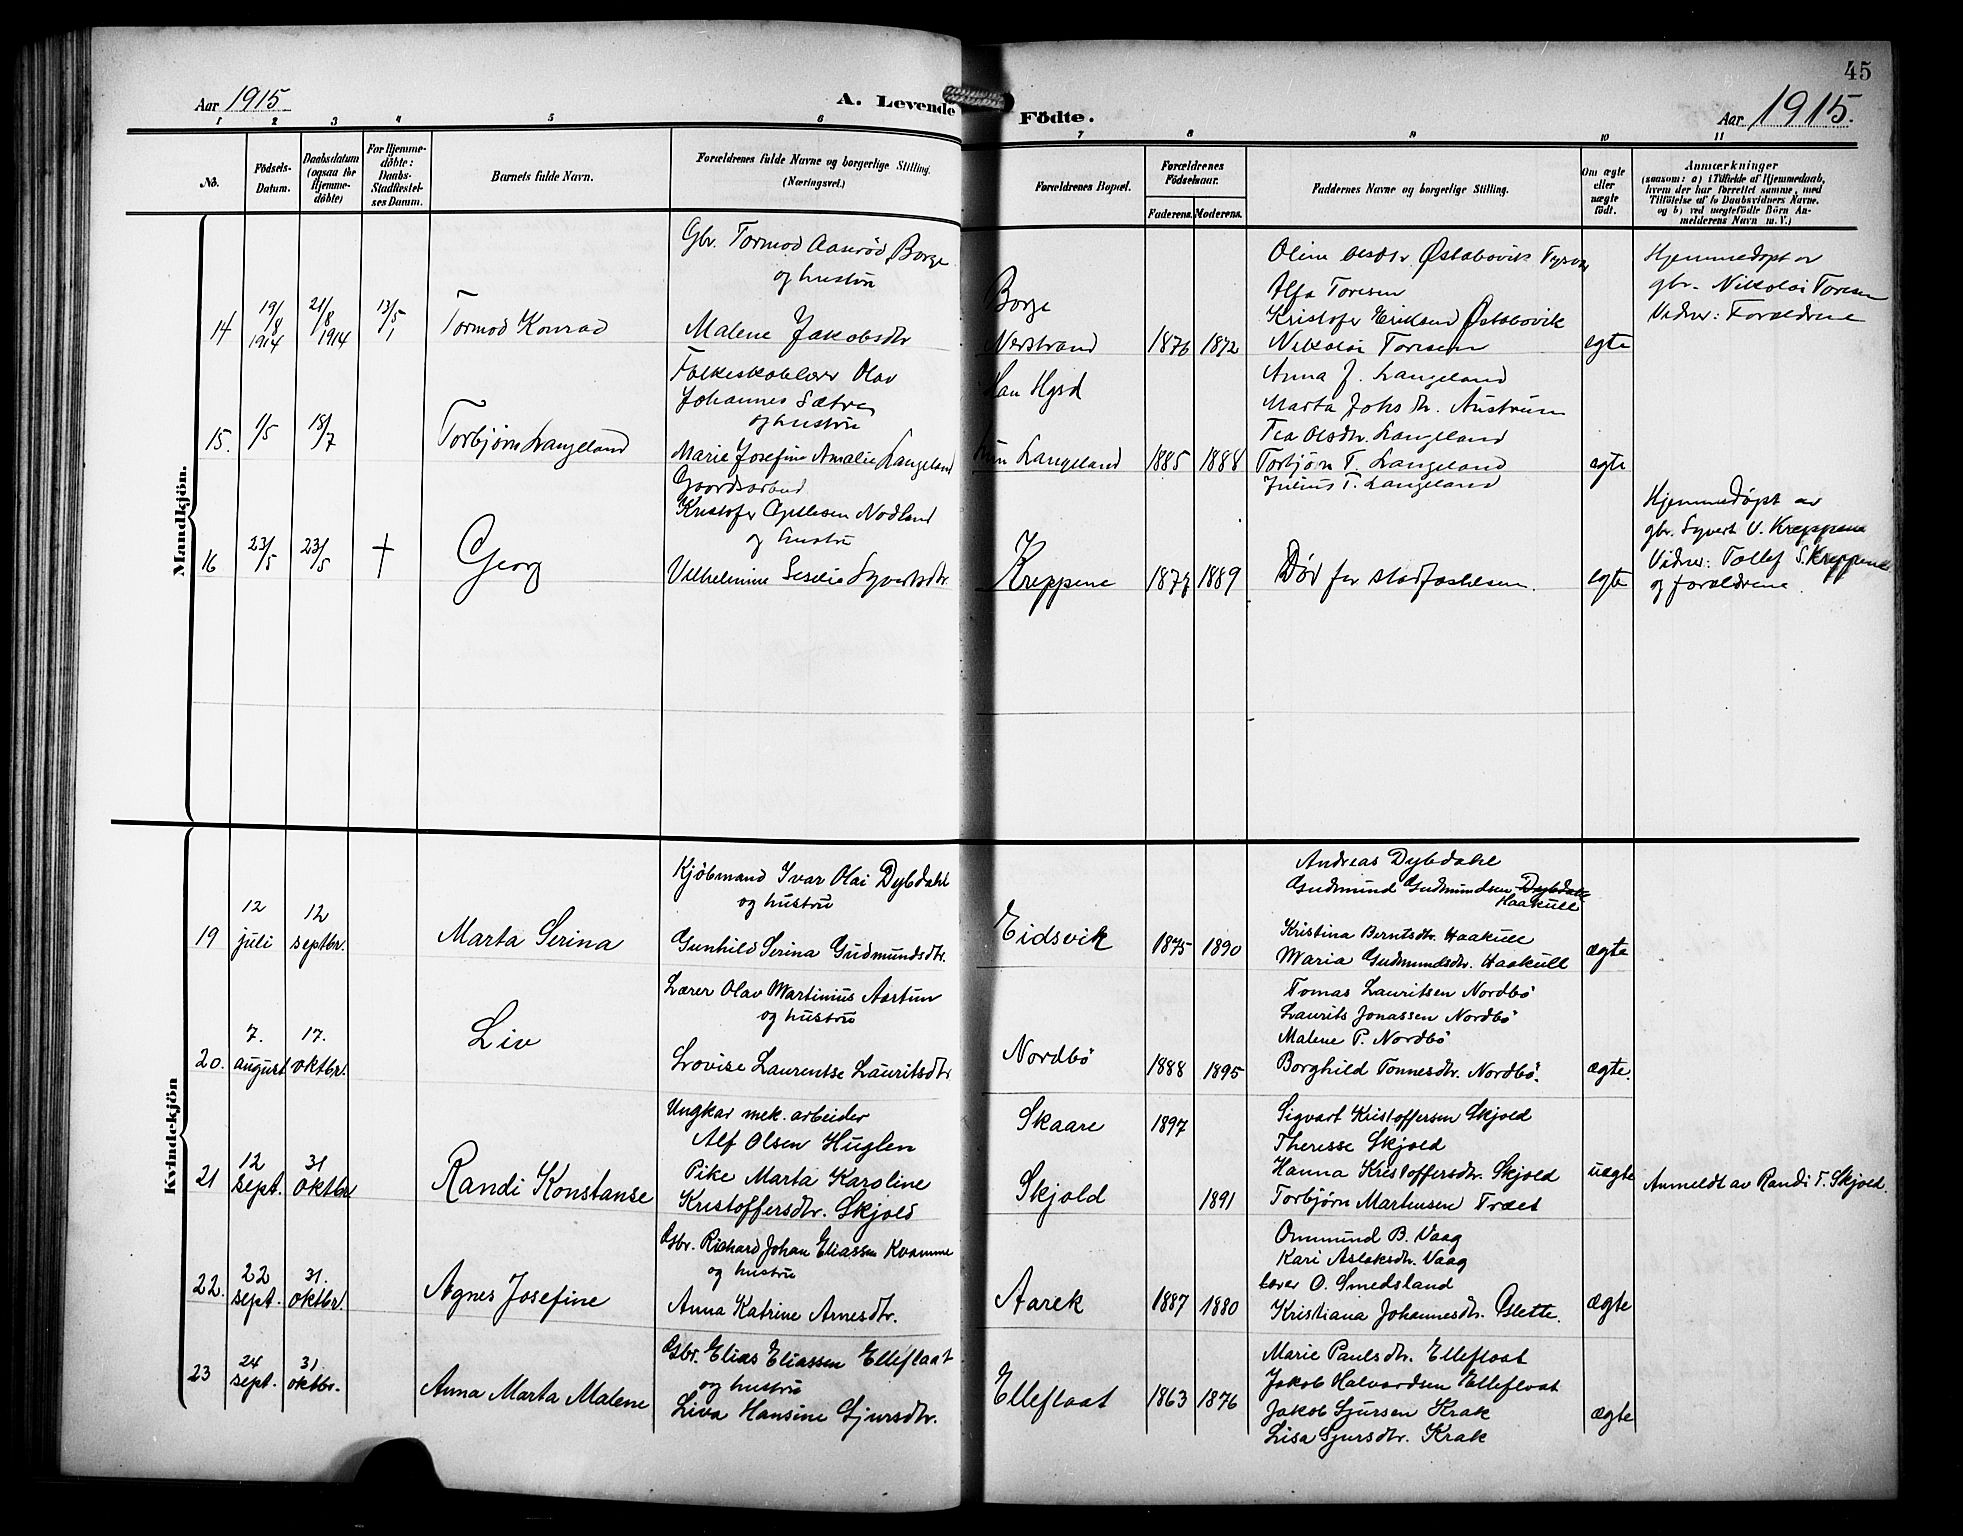 45
Aar 1915
A. Levende Födte.
Aar 1915.
1 2 3 4 5 6 7 8 9 10 11
No.
Födsels-
Datum.
Daabsdatum
(ogsaa for
Hjemme-
döbte)
For Hjemme-
döbte:
Daabs-
Stadfæstel-
ses Datum.
Barnets fulde Navn.
Forældrenes fulde Navne og borgerlige Stilling.
(Næringsvei.)
Forældrenes Bopæl.
Forældrenes
Födselsaar.
Faderens. Moderens.
Faddernes Navne og borgerlige Stilling.
Om ægte
eller
uægte
födt.
Anmærkninger
(saasom: a) i Tilfælde af Hjemmedaab,
hvem der har forrettet samme, med
Tilföielse af to Daabsvidners Navne.
og b) ved uegtefödte Börn An-
melderens Navn m. V.)
Mandkjön.
14
19/8
1914
21/8
1914
13/5
Tormod Konrad
Gbr. Tormod Aaseröd Borge
og hustru
Malene Jakobsdtr
Borge
Nerstrand
1876 1872
Oline Olsdtr. Østabovik Tysvær
Alfa Toresen
Kristofer Eriksen Østabovik
Nikolai Toresen
egte
Hjemmedøpt av
gbr. Nikolai Toresen
Vidner: Forældrene
15.
1/5
18/7
Torbjørn Langeland
Folkeskolelærer Olav
Johannes Sætre
og hustru
Marie Josefine Amalie Langeland
Han
Hun Langeland
1885 1888
Anna J. Langeland
Marta Johs dtr. Austrum
Tea Olsdtr. Langeland
Torbjørn T. Langeland
Julius T. Langeland
egte
16
23/5
23/5
+
Georg
Gaardsarbud
Kristofer Nodland
og hustru
Vilhelmine Seselie Syvertsdtr.
Kreppene
1877 1889
Død før stadfæstelsen.
egte
Hjemmedøpt av
gbr. Syvert V. Kreppene
Vidner: Tollef S. Kreppene
og forældrene.
Kvindekjön
19
12
juli
12
septbr.
Marta Serina
Kjøbmand Ivar Olai Dybdahl
og hustru
Gunhild Serina Gudmundsdtr.
Eidsvik
1875 1890
Andreas Dybdahl
Gudmund Gudmundsen Dybdahl
Haakull
Kristina Berntsdtr. Haakull
Maria Gudmundsdtr. Haakull
ægte
20.
7.
august
17.
oktbr.
Liv
Lærer Olav Martinius Aartun
og hustru
Lovise Laurentse Lauritsdtr
Nordbö
1888 1895
Tomas Lauritsen Nordbö
Laurits Jonassen Nordbö
Malene P. Nordbö
Borghild Tonnesdtr. Nordbö.
ægte.
21
12
sept.
31
oktbr
Randi Konstanse
Ungkar mek. arbeider
Alf Olsen Huglen
Pike Marta Karoline
Kristoffersdtr. Skjold
Skaare
Skjold
1897
1891
Sigvart Kristoffersen Skjold
Theresse Skjold
Hanna Kristoffersdtr. Skjold
Torbjörn Martensen Træet
uægte
Anmeldt av Randi T. Skjold.
22.
22
sept.
31.
oktbr.
Agnes Josefine
Gbr. Richard Johan Eliassen Kvamme
og hustru
Anna Katrine Arnesdtr.
Aarek
1887 1880
Ommund B. Vaag
Kari Aslaksdtr. Vaag
Lærer O. Smedsland
Kristiana Johannesdtr. Oslette.
ægte
23
24
sept.
31.
oktbr.
Anna Marta Malene
Gbr. Elias Eliassen Elleflaat
og hustru
Liva Hansine Sjursdtr.
Elleflaat
1863 1876
Marie Paulsdtr. Elleflaat
Jakob Halvardsen Elleflaat
Jakob Sjursen Krak
Lisa Sjursdtr. Krak
ægte